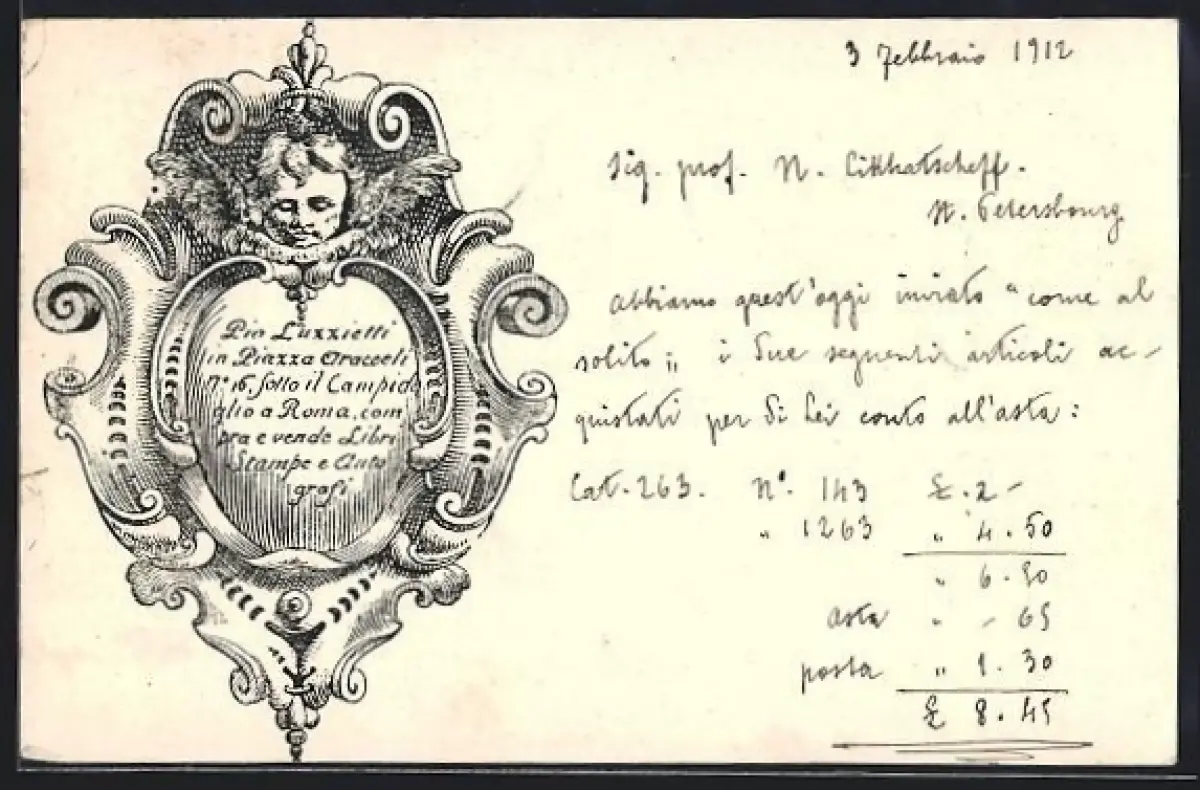 Pio Luzzietti
in Piazza Aracoeli
N° 16. sotto il Campid
glio a Roma, com
pra e vende Libri
Stampe e Auto
grafi
3 Febbraio 1912
Sig. prof. N. Likhatscheff.
St. Petersbourg
Abbiamo quest'oggi inviato "come al
solito„ i Sue seguenti articoli ac-
quistati per di Lei conto all'asta:
Cat. 263. N°. 143 £. 2 -
" 1263 " 4.50
" 6.50
Asta " - 65
posta " 1.30
£ 8.45